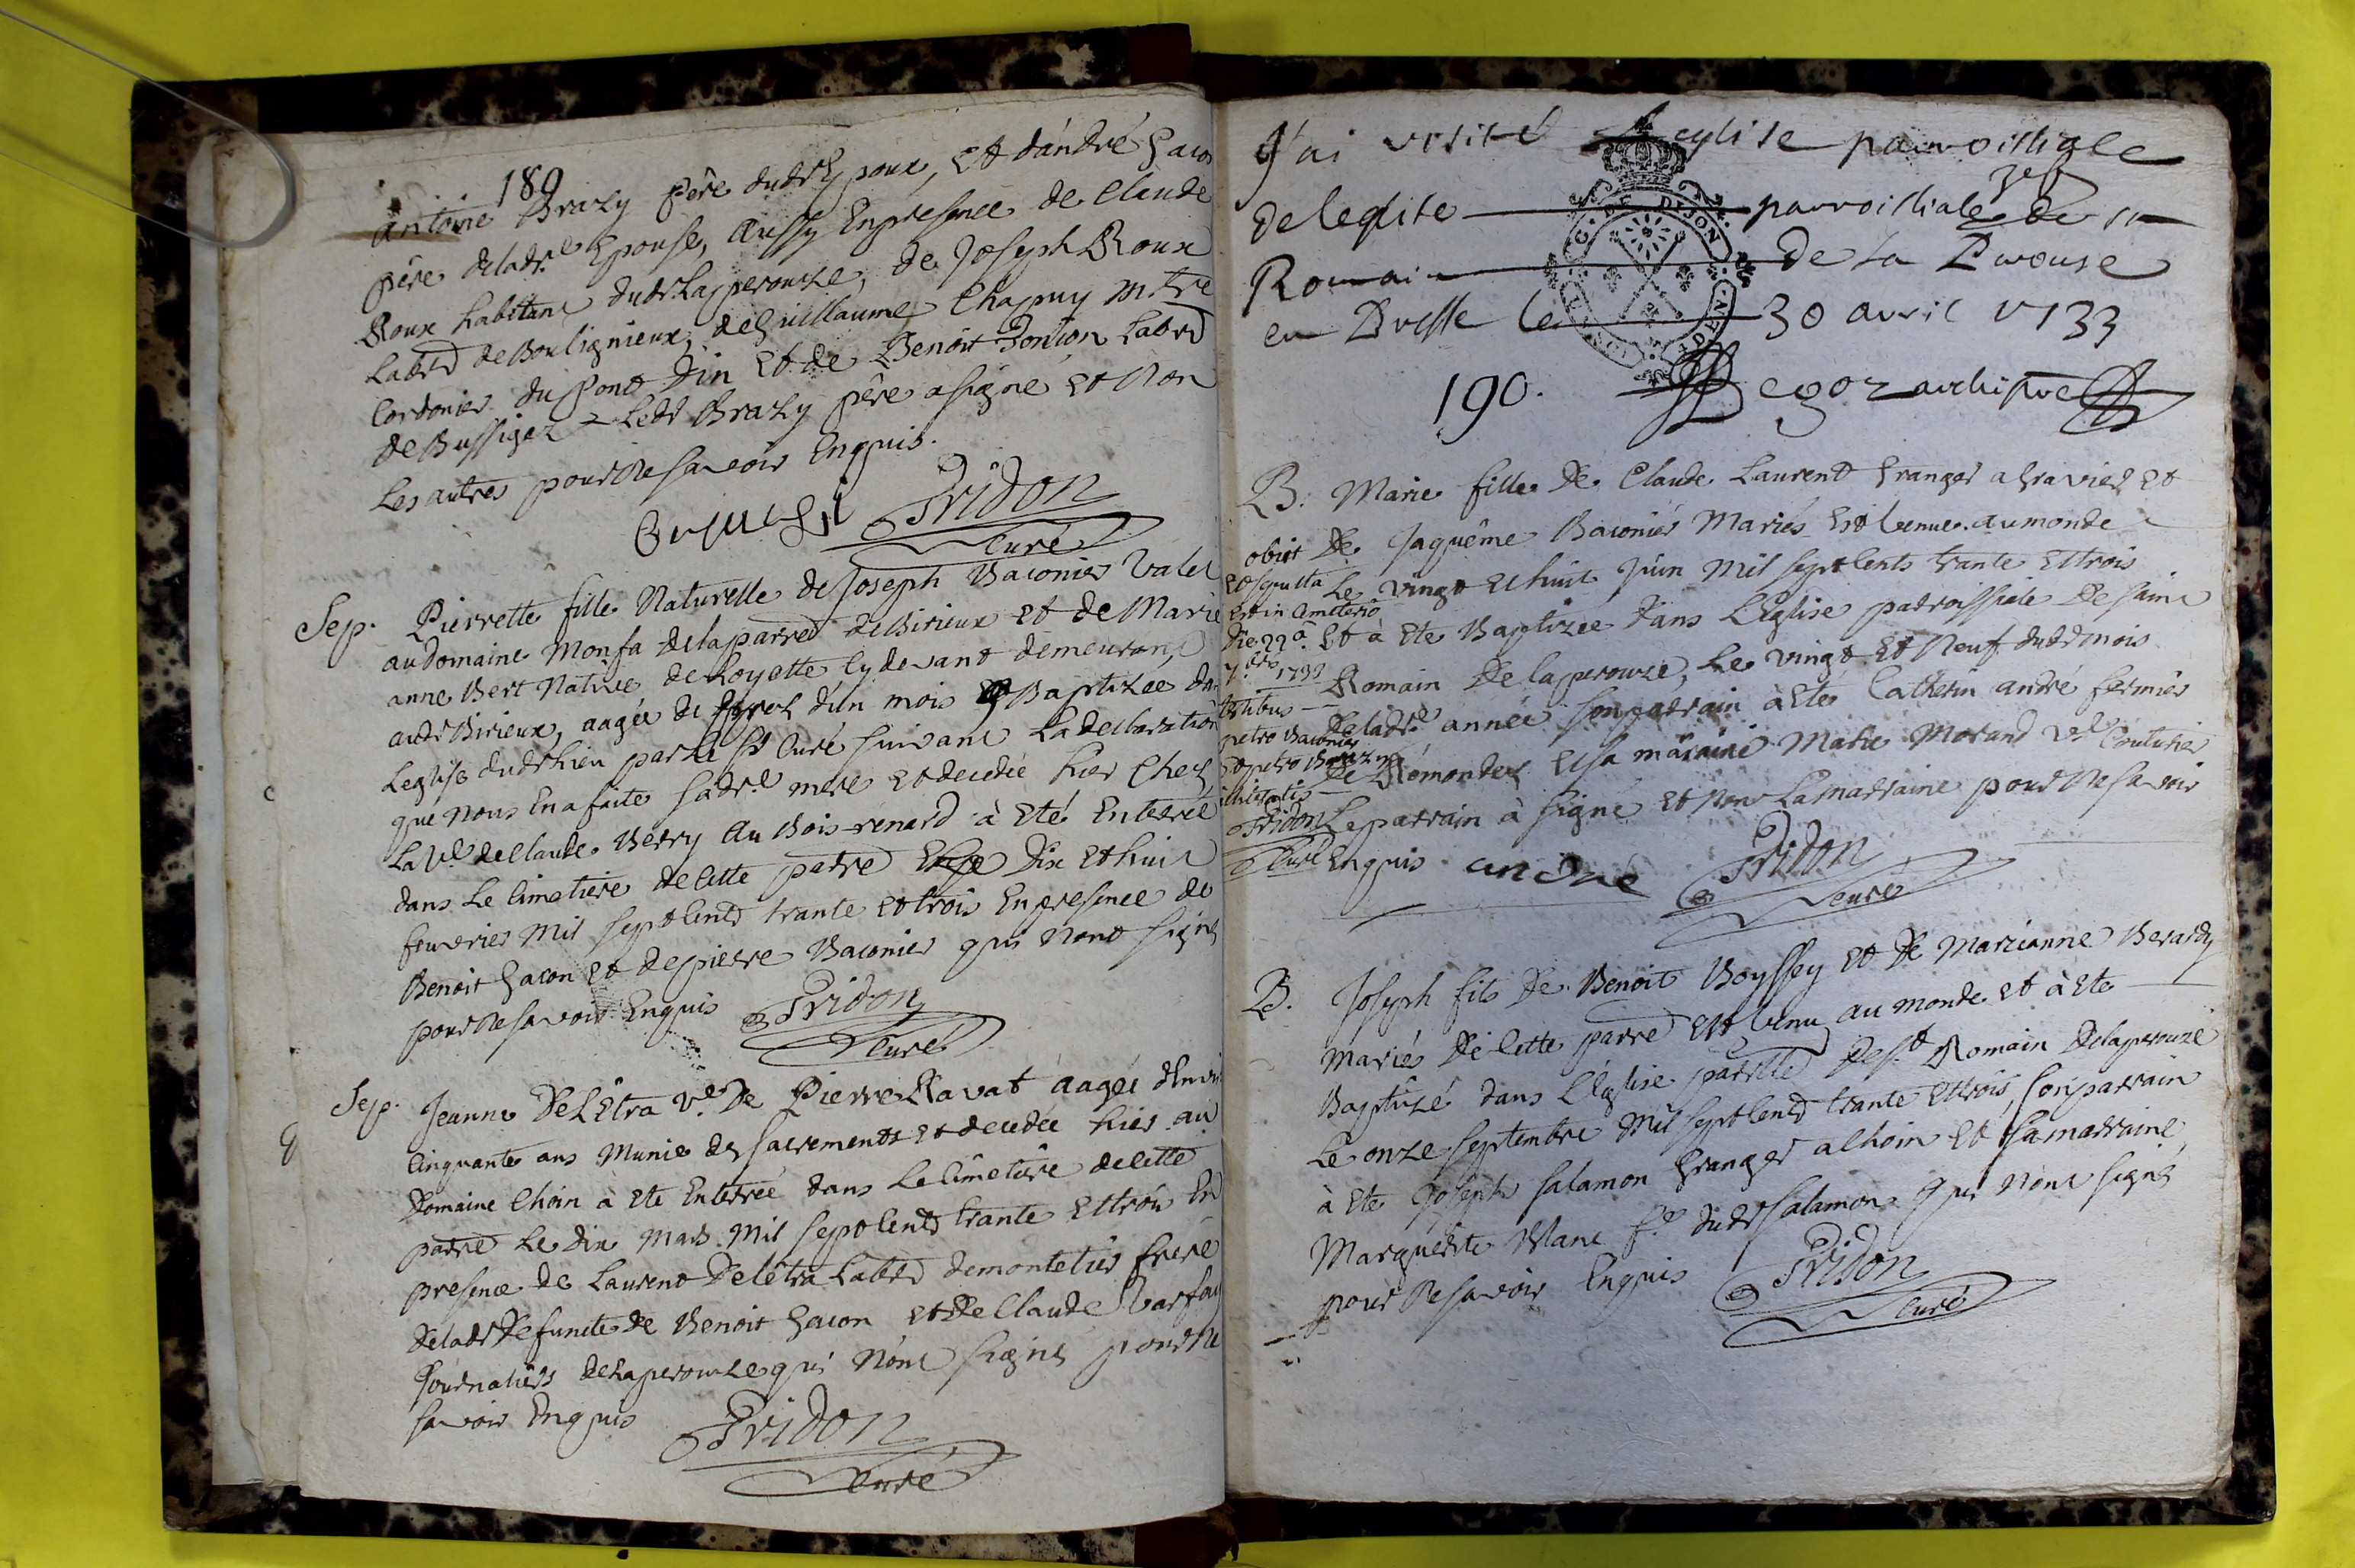 189
antoine Brazy père dudt Epoux, Et d'andré Gacon
père deladte Epouse, aussy Enpresence de Claude
Roux habitant dudt Laperouze, de Joseph Roux
Labrd de Bouligneux; de Guillaume Chapuy mtre
Cordonier du Pont d'in Et de Benoit Labrd
de Bussiges Ledt Brazy père asigné et Non
Les autres pour Ne savoir Enquis.
Pridon
Curé
Sep. Pierrette fille Naturelle de Joseph Baconier Valet
au domaine Monfa delaparre de Birieux et de Marie
anne Bert Native de Loyette Cy devant demeurant
audt Birieux, aagée de d'un mois Baptizée da
Leglise dudt Lieu par le Sr Curé suivant La declaration
que Nous En a faite sadte mere et decedée hier Chez
La Ve de Claude Berry au Bois-renard à Eté Enterrée
dans Le Cimetiere de Cette parre Dix Et huit
fevrier Mil sept Cents trante et trois En presence de
Benoit Gacon et de pierre Baconier qui Nont signé
pour Ne savoir Enquis Pridon
Curé
Sep. Jeanne De L'Etra Ve De Pierre Ravat aagée d'Envi
Cinquante ans Munie des sacrements et decedée hier au
Domaine Choin à Eté Enterrée dans Le Cimetiere de Cette
parre Le dix Mars Mil sept Cents trante Et trois En
presence de Laurent Deletra Labrd de montelier frere
deladt Defuncte de Benoit Gacon et De Claude
Journaliers de Laperouze qui Nont signé pour Ne
savoir Enquis Pridon
Curé
J'ai visité Leglise parroissiale
de leglise parroissiale de st
Romain de La Perouse
en Bresse le 30 avril 1733
190. egoz archiptre
B. Marie fille De Claude Laurent Granger a Gravier et
De Jaquême Baconier Mariés Est Venue au monde
Le vingt Et huit Juin Mil sept Cents trante Et trois
Et à Eté Baptizée dans L'Eglise parroissiale De saint
Romain De Laperouze, Le vingt Et Neuf dudt mois
Deladte année son parrain à Eté Catherin andré fermier
De Rémondes Et sa maraine Marie Morand Ve Couturier
Le parrain à signé Et Non La marraine pour Ne savoir
Enquis andré Pridon
Curé
obiit
Et sepulta
Est in Cemeterio
die 22a
7bris 1733
testibus
petro Baconier
Et petro
illiteratis
Pridon
Curé
B. Joseph fils De Benoit Boyssey Et De Marianne Berardy
mariés De Cette parre Est Venu au monde et à Eté
Baptizé dans L'Eglise parrlle De St Romain De Laperouze
Le onze septembre Mil sept Cents trante Et trois, son parrain
à Eté Joseph salamon Granger a Choin Et sa marraine
Marguerite Blanc fe dudt salamon qui Nont signé
pour Ne savoir Enquis Pridon
Curé